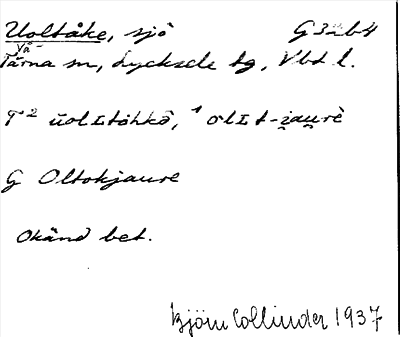 Uoltåke, sjö G32b4
Vå-
Tärna sn, Lycksele tg, Vbt l.
T² ūolɪtåhkō, ¹ olɪt-jaurè
G Oltokjaure
Okänd bet.
Björn Collinder 1937